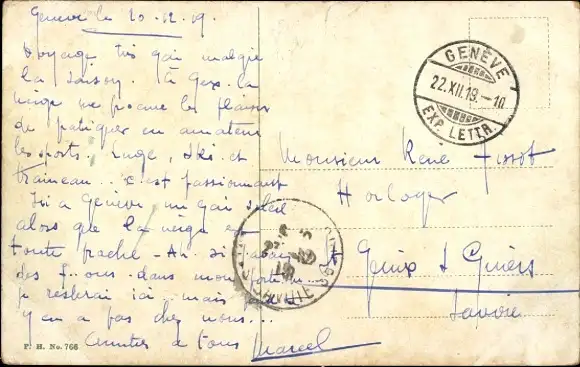 Genève le 20-12-19.
Voyage très gai malgré
la saison. À Gex la
neige me procure les plaisirs
de pratiquer en amateur
les sports. Luge, ski et
traineau.. c'est passionnant
Ici a Genève un gai soleil
alors que la neige est
toute proche - Ah. Si j'avais
des dans mon
je resterai ici mais
y en a pas chez nous...
a tous Marcel
P. H. No. 766
GENÈVE
22.XII.19.-10
EXP. LETTR.
Monsieur René Tissot
Horloger
St Genix s/ Guiers
Savoie